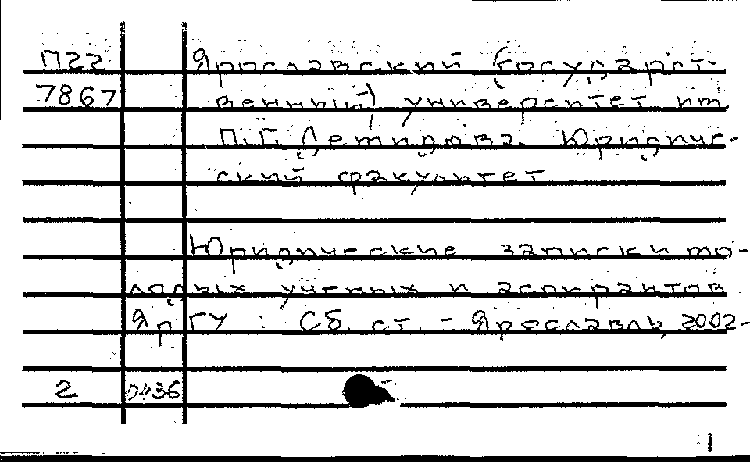 П22 Ярославский (государст-
7867 венный) университет им.
П.Г. Демидова. Юридиче-
ский факультет
Юридические записки мо-
лодых ученых и аспирантов
ЯрГУ : Сб. ст. - Ярославль, 2002-
2 0436
1